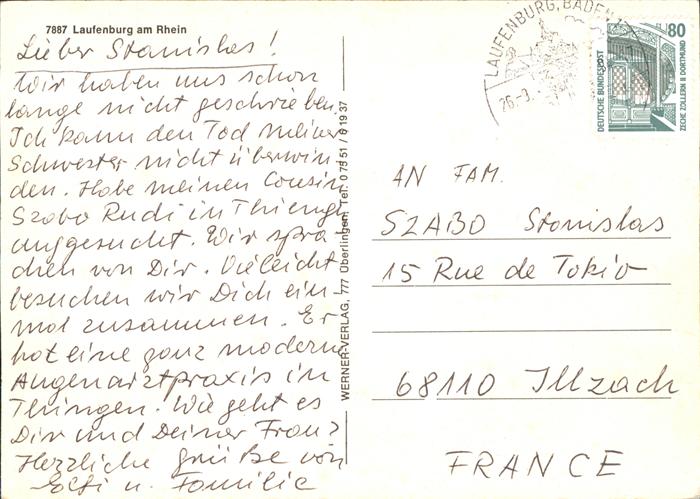 7887 Laufenburg am Rhein
Lieber Stanislas!
Wir haben uns schon
lange nicht geschrieben.
Ich kann den Tod meiner
Schwester nicht überwin-
den. Habe meinen Cousin
Szabo Rudi in Thiengen
aufgesucht. Wir spra-
chen von Dir. Vielleicht
besuchen wir Dich ein-
mal zusammen. Er
hat eine ganz moderne
Augenarztpraxis in
Thingen. Wie geht es
Dir und Deiner Frau?
Herzliche Grüße von
Elfi u. Familie
WERNER-VERLAG, 777 Überlingen, Tel. 0 75 51 / 6 19 37
LAUFENBURG, BADEN 1
26.-3.
80
DEUTSCHE BUNDESPOST
ZECHE ZOLLERN II DORTMUND
AN FAM.
SZABO Stanislas
15 Rue de Tokio
68110 Illzach
FRANCE